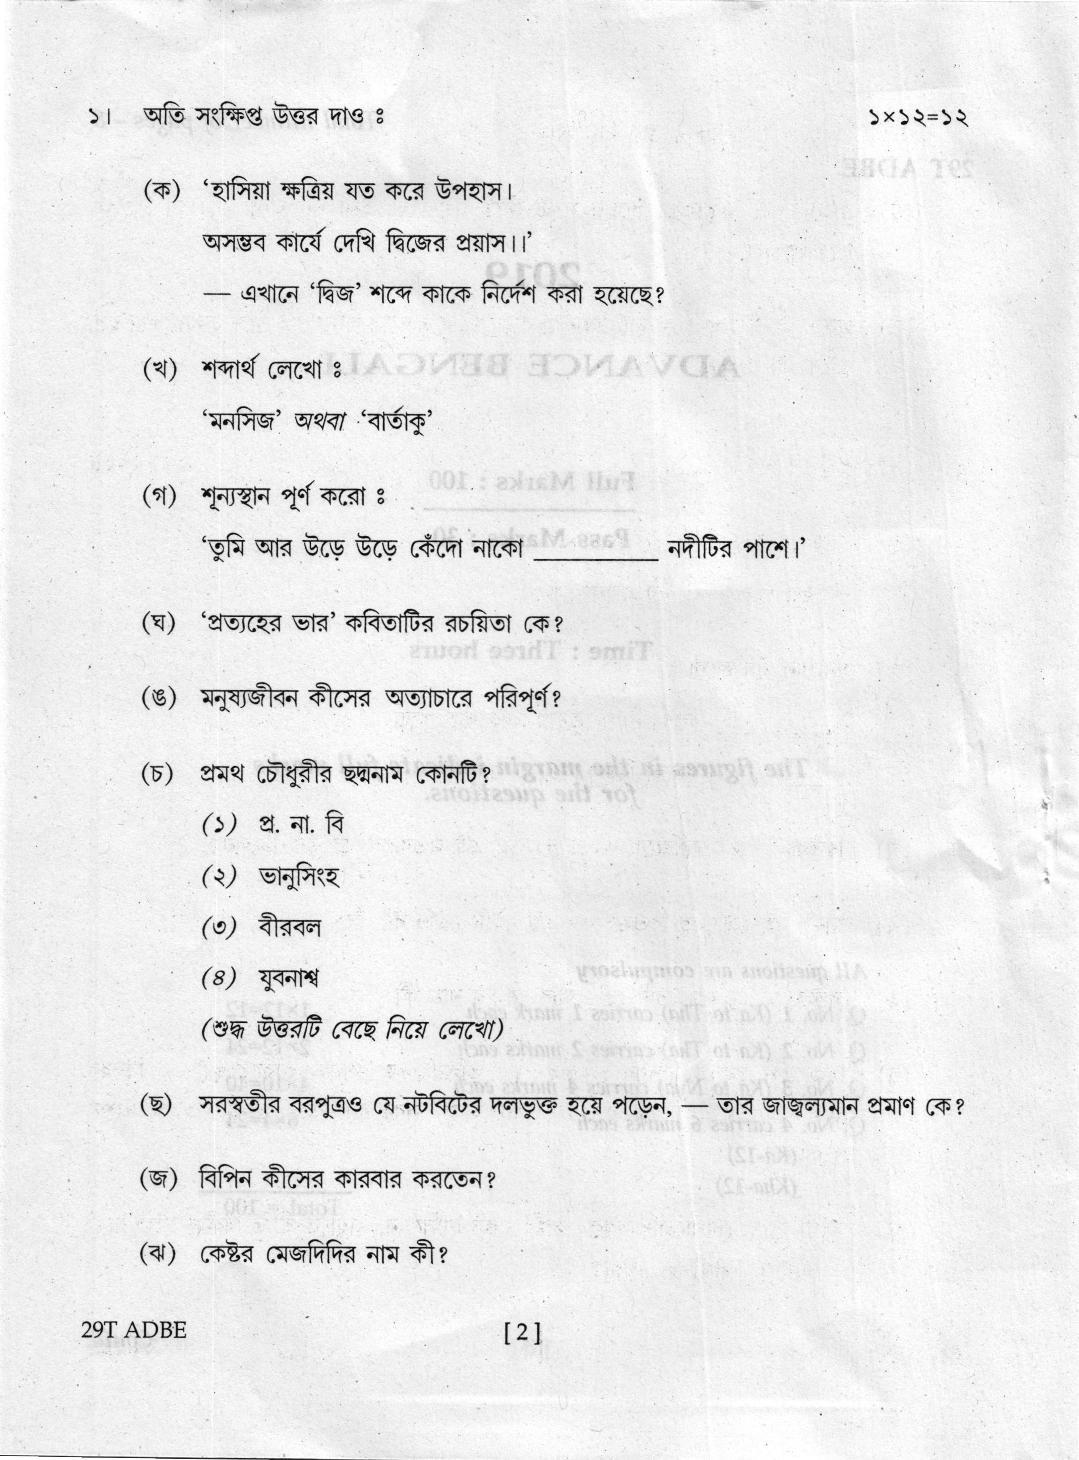 ১। অতি সংক্ষিপ্ত উত্তর দাও ঃ ১×১২=১২
(ক) ‘হাসিয়া ক্ষত্রিয় যত করে উপহাস।
অসম্ভব কার্যে দেখি দ্বিজের প্রয়াস।।’
— এখানে ‘দ্বিজ’ শব্দে কাকে নির্দেশ করা হয়েছে?
(খ) শব্দার্থ লেখো ঃ
‘মনসিজ’ অথবা ‘বার্তাকু’
(গ) শূন্যস্থান পূর্ণ করো ঃ
‘তুমি আর উড়ে উড়ে কেঁদো নাকো __________ নদীটির পাশে।’
(ঘ) ‘প্রত্যহের ভার’ কবিতাটির রচয়িতা কে?
(ঙ) মনুষ্যজীবন কীসের অত্যাচারে পরিপূর্ণ?
(চ) প্রমথ চৌধুরীর ছদ্মনাম কোনটি?
(১) প্র. না. বি
(২) ভানুসিংহ
(৩) বীরবল
(৪) যুবনাশ্ব
(শুদ্ধ উত্তরটি বেছে নিয়ে লেখো)
(ছ) সরস্বতীর বরপুত্রও যে নটবিটের দলভুক্ত হয়ে পড়েন, — তার জাজ্বল্যমান প্রমাণ কে?
(জ) বিপিন কীসের কারবার করতেন?
(ঝ) কেষ্টর মেজদিদির নাম কী?
29T ADBE [2]